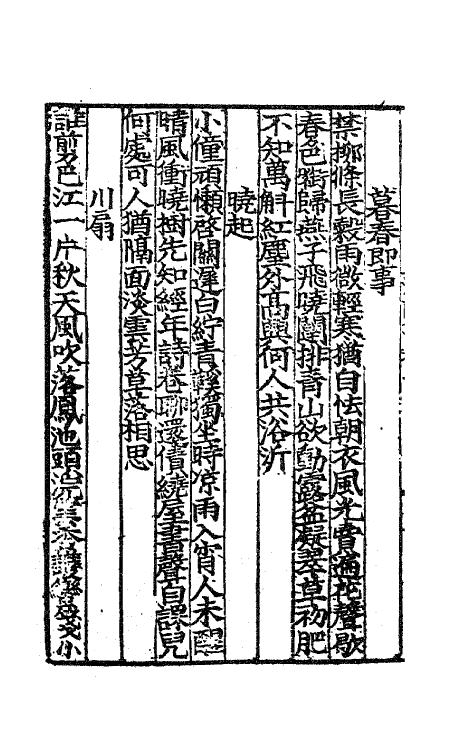 暮春即事
禁掷條長穀雨微輕寒猶自怯朝衣風光賣遍花聲歇
春色銜歸燕子飛曉闥排青山欲動露盆凝翠草初肥
不知萬斛紅塵外髙興何人共浴沂
曉起
小僮頑懶啓關遲白紵青鞵獨坐時凉雨入宵人未
晴風衝曉樹先知經年詩卷聊還債繞屋書聲自課兒
何處可人猶隔面淡雲芳草落相思
川扇
誰剪巴江一片秋天風吹落鳯池頭